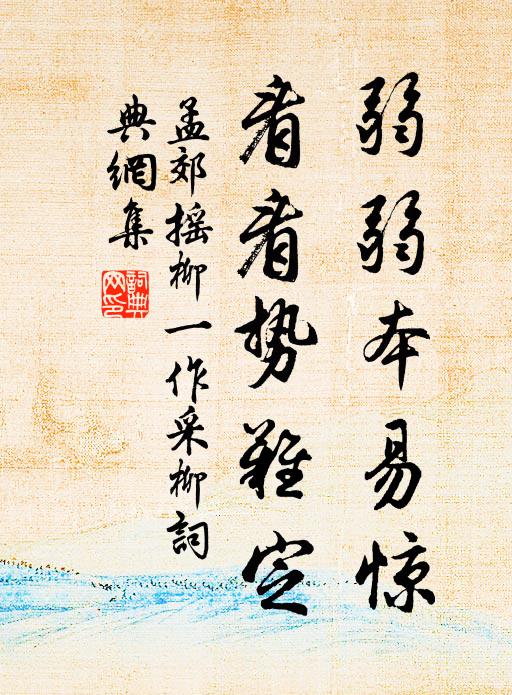 弱弱本易惊
看看势难定
孟郊摇柳一作采柳詞
典網集
詞典網印